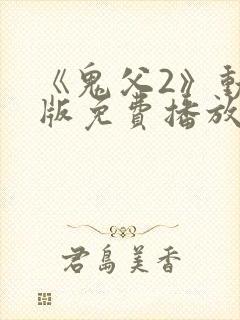 《鬼父2》動
版免費播放
君島美香